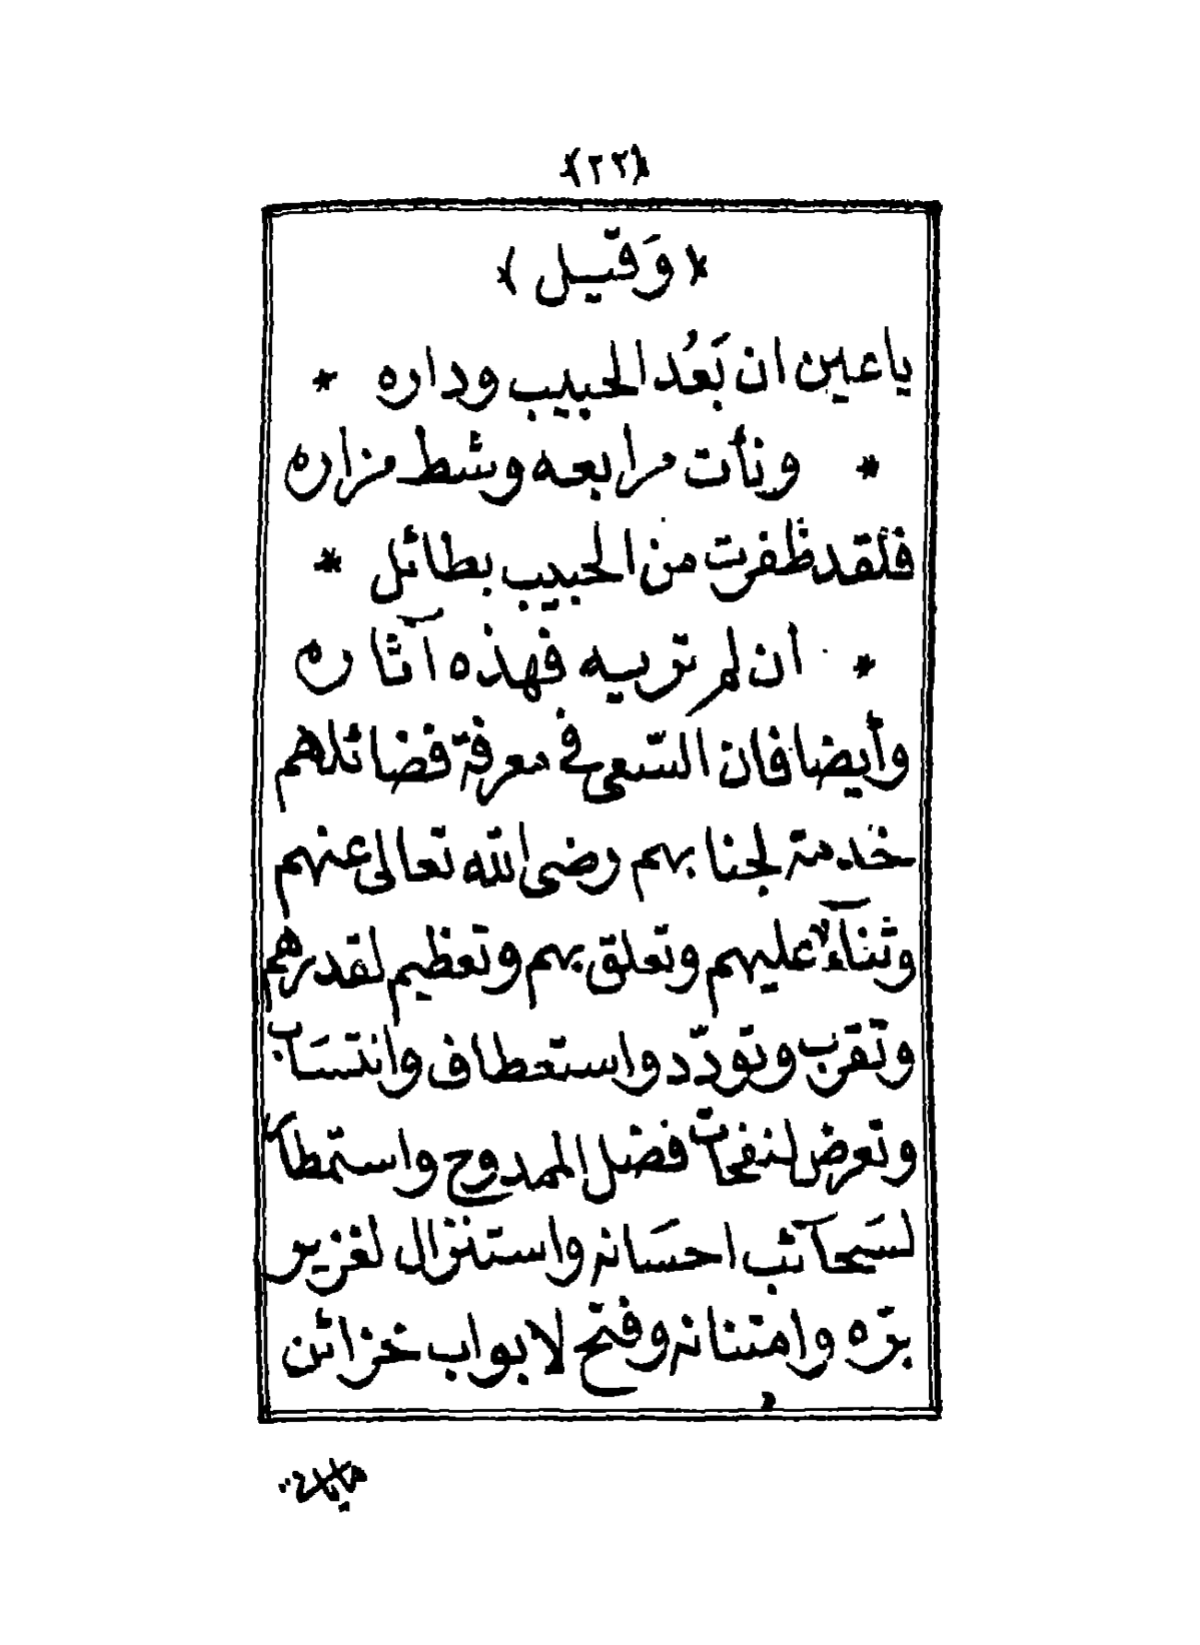 ﴿٢٢﴾
﴿وَقيل﴾
ياعين ان بَعُد الحبيب وداره *
* ونأت مرابعه وشط مزاره
فلقد ظفرت من الحبيب بطائل *
* ان لم تريه فهذه آثاره
وأيضا فان السّعى فى معرفة فضائلهم
خدمة لجنابهم رضى الله تعالى عنهم
وثناءً عليهم وتعلق بهم وتعظيم لقدرهم
وتقرب وتودّد واستعطاف وانتسَاب
وتعرض لنفحات فضل الممدوح واستمطار
لسَحآئب احسَانه واستنزال لغزير
برّه وامتنانه وفتح لابواب خزائن
هباته